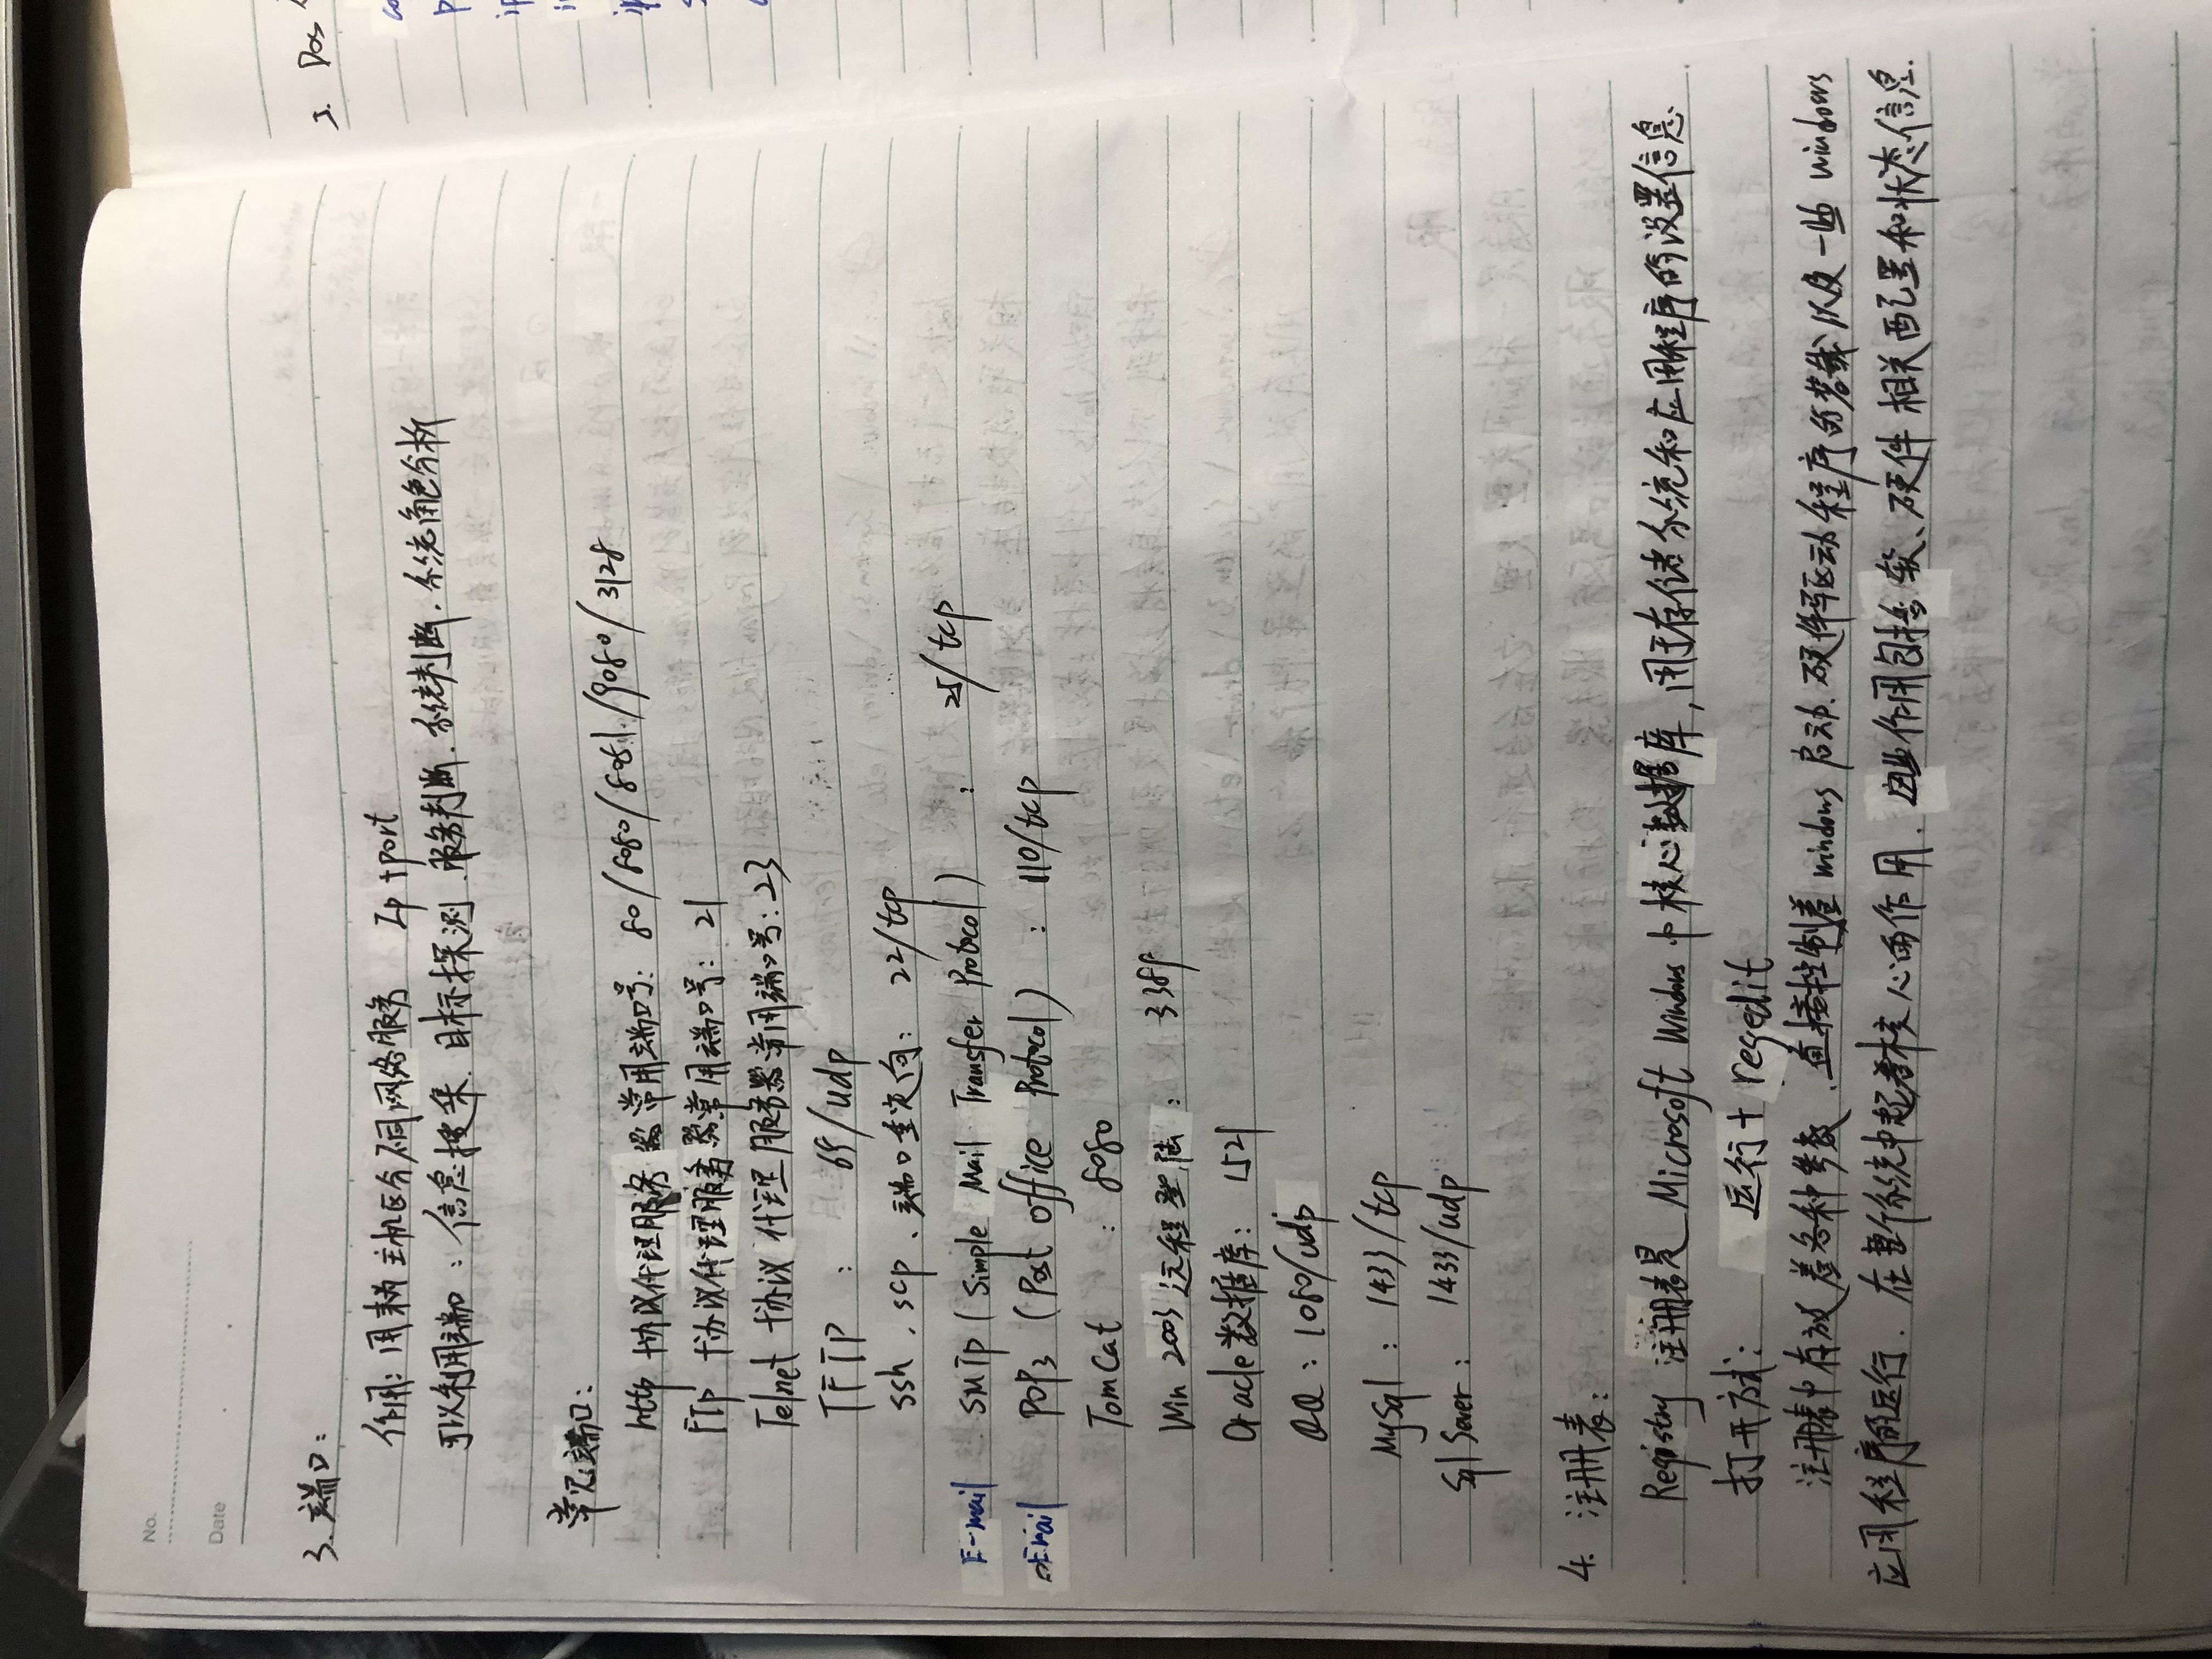 No.
Date
3. 端口:
作用: 用来主机区分不同网络服务 Ip+port
可以利用端口: 信息搜集. 目标探测. 服务判断. 系统判断. 系统角色分析
常见端口:
http 协议代理服务器常用端口号: 80/8080/8081/9080/3128
FTP 协议代理服务器常用端口号: 21
Telnet 协议代理服务器常用端口号: 23
TFTP : 69/udp
ssh、scp、端口重定向: 22/tcp
E-mail SMTP (Simple Mail Transfer Protocol) : 25/tcp
POP3 (Post office Protocol) : 110/tcp
TomCat : 8080
Win 2003 远程登陆 : 3389
Oracle数据库: 1521
QQ : 1080/udp
MySql : 1433/tcp
Sql Sever : 1433/udp
4. 注册表:
Registry 注册表是 Microsoft Windows 中核心数据库, 用于存储系统和应用程序的设置信息
打开方式: 运行 + regedit
注册表中存放着各种参数、直接控制着 windows 启动. 硬件驱动程序的装载以及一些 windows
应用程序的运行. 在整个系统中起着核心两作用. 因此作用包括软、硬件相关配置和状态信息.
3. Dos